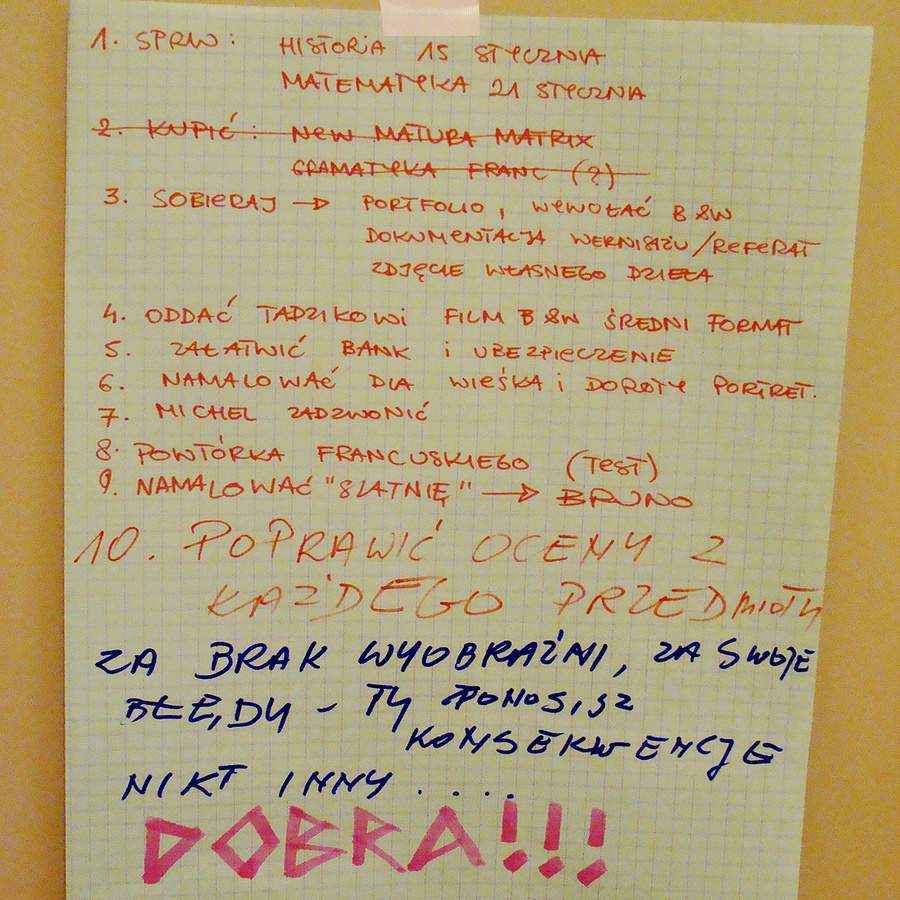 1. SPRW: HISTORIA 15 STYCZNIA
MATEMATYKA 21 STYCZNIA
2. KUPIĆ: NEW MATURA MATRIX
GRAMATYKA FRANC (?)
3. SOBIERAJ → PORTFOLIO, WYWOŁAĆ B&W
DOKUMENTACJA WERNISAŻU/REFERAT
ZDJĘCIE WŁASNEGO DZIEŁA
4. ODDAĆ TADZIKOWI FILM B&W ŚREDNI FORMAT
5. ZAŁATWIĆ BANK I UBEZPIECZENIE
6. NAMALOWAĆ DLA WIEŚKA I DOROTY PORTRET.
7. MICHEL ZADZWONIĆ
8. POWTÓRKA FRANCUSKIEGO (TEST)
9. NAMALOWAĆ → BRUNO
10. POPRAWIĆ OCENY Z
KAŻDEGO PRZEDMIOTU
ZA BRAK WYOBRAŹNI, ZA SWOJE
BŁĘDY - TY PONOSISZ
KONSEKWENCJE
NIKT INNY .....
DOBRA!!!